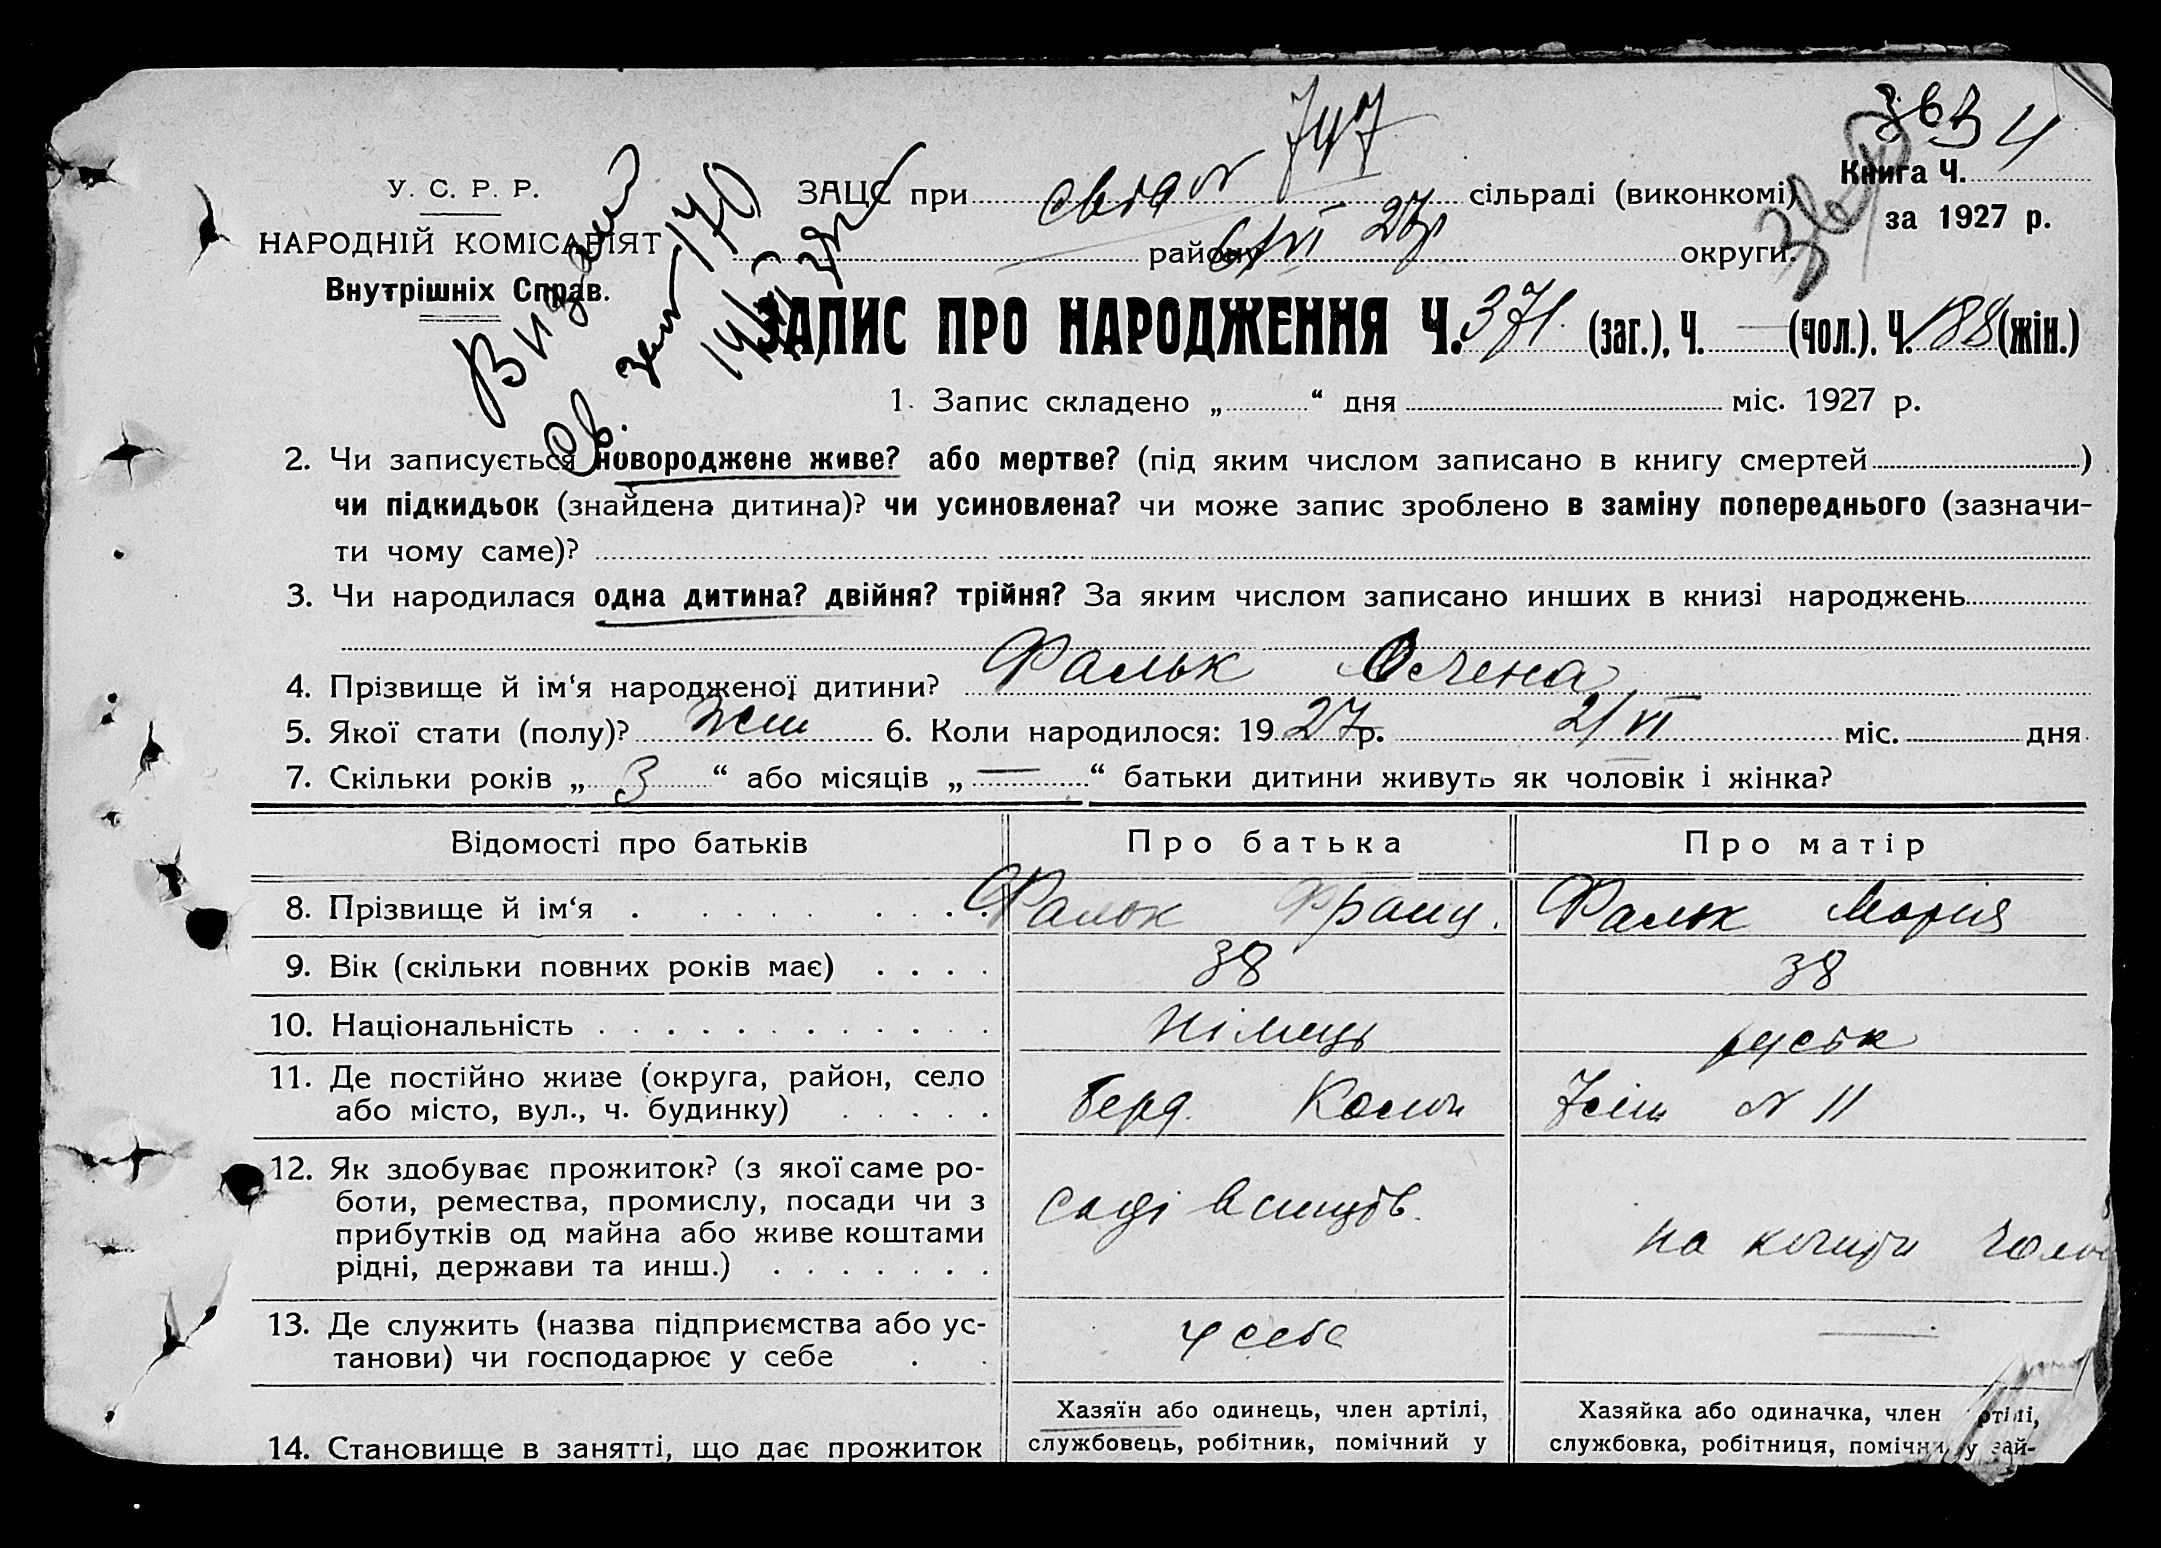 747
34
У. С. Р. Р.
ЗАЦС при сільраді (виконкомі)
Книга Ч.
за 1927 р.
НАРОДНІЙ КОМІСАРІЯТ
району 6/VI 27р округи.
Внутрішніх Справ.
170
ЗАПИС ПРО НАРОДЖЕННЯ Ч. 371 (заг.), Ч. — (чол.), Ч. 188 (жін.)
1. Запис складено „ “ дня міс. 1927 р.
2. Чи записується новороджене живе? або мертве? (під яким числом записано в книгу смертей )
чи підкидьок (знайдена дитина)? чи усиновлена? чи може запис зроблено в заміну попереднього (зазначи-
ти чому саме)?
3. Чи народилася одна дитина? двійня? трійня? За яким числом записано инших в книзі народжень
4. Прізвище й ім‘я народженої дитини? Фальк Олена
5. Якої стати (полу)? жін 6. Коли народилося: 1927 р. 2/VI міс. дня
7. Скільки років „ 3 “ або місяців „ — “ батьки дитини живуть як чоловік і жінка?
Відомості про батьків Про батька Про матір
8. Прізвище й ім‘я Фальк Франц. Фальк Марія
9. Вік (скільки повних років має) 38 38
10. Національність німець руська
11. Де постійно живе (округа, район, село
або місто, вул., ч. будинку) N 11
12. Як здобуває прожиток? (з якої саме ро-
боти, ремества, промислу, посади чи з
прибутків од майна або живе коштами
рідні, держави та инш.) на кошти
13. Де служить (назва підприємства або ус-
танови) чи господарює у себе у себе —
14. Становище в занятті, що дає прожиток
Хазяїн або одинець, член артілі,
службовець, робітник, помічний у
Хазяйка або одиначка, член артілі,
службовка, робітниця, помічна у зай-